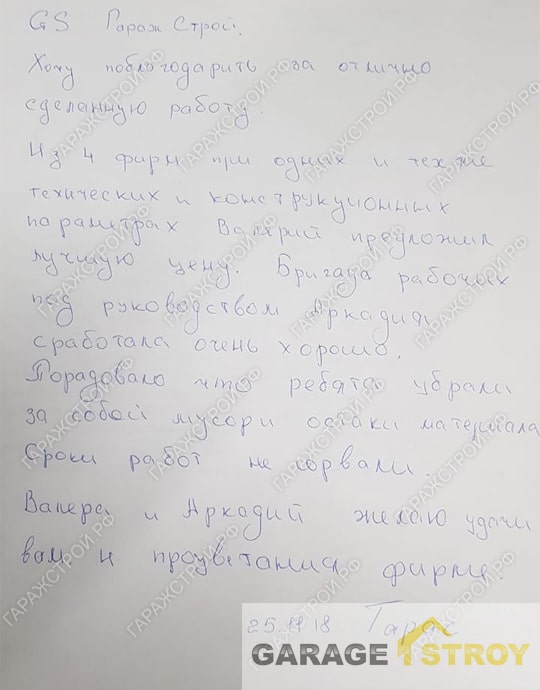 GS Гараж Строй.
Хочу поблогодарить за отлично
сделанную работу.
Из 4 фирм при одних и тех же
технических и конструкционных
параметрах Валярий предложил
лучшую цену. Бригада рабочьех
под руководством Аркадия
сработала очень хорошо.
Порадовало что ребята убрали
за собой мусор и остаки материала
Сроки работ не сорвали.
Валера и Аркадий желаю удачи
вам и процветания фирме.
Тарас
GARAGE STROY
ГАРАЖСТРОЙ.РФ